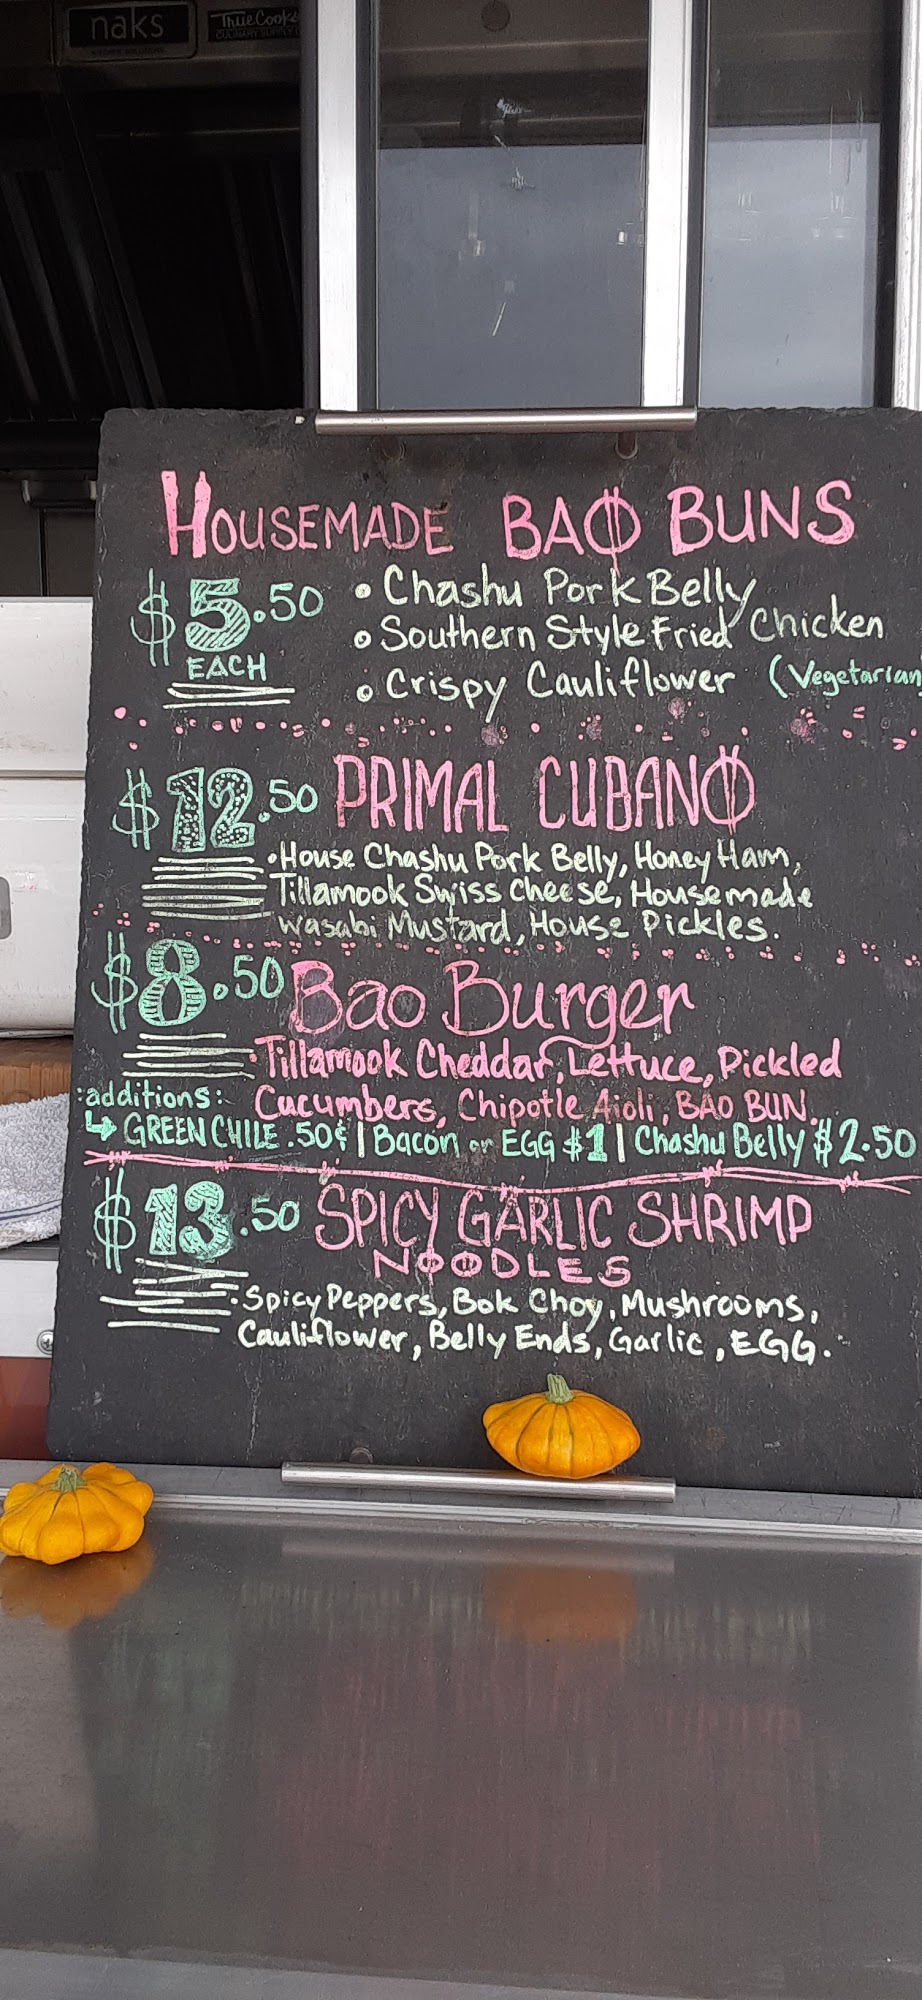 naks
TrueCooks
HOUSEMADE BAO BUNS
$5.50
EACH
• Chashu Pork Belly
• Southern Style Fried Chicken
• Crispy Cauliflower (Vegetarian
$12.50 PRIMAL CUBANO
• House Chashu Pork Belly, Honey Ham,
Tillamook Swiss Cheese, Housemade
Wasabi Mustard, House Pickles.
$8.50 Bao Burger
• Tillamook Cheddar, Lettuce, Pickled
Cucumbers, Chipotle Aioli, BAO BUN.
:additions:
↳ GREEN CHILE .50¢ | Bacon or EGG $1 | Chashu Belly $2.50
$13.50 SPICY GARLIC SHRIMP
NOODLES
• Spicy Peppers, Bok Choy, Mushrooms,
Cauliflower, Belly Ends, Garlic, EGG.